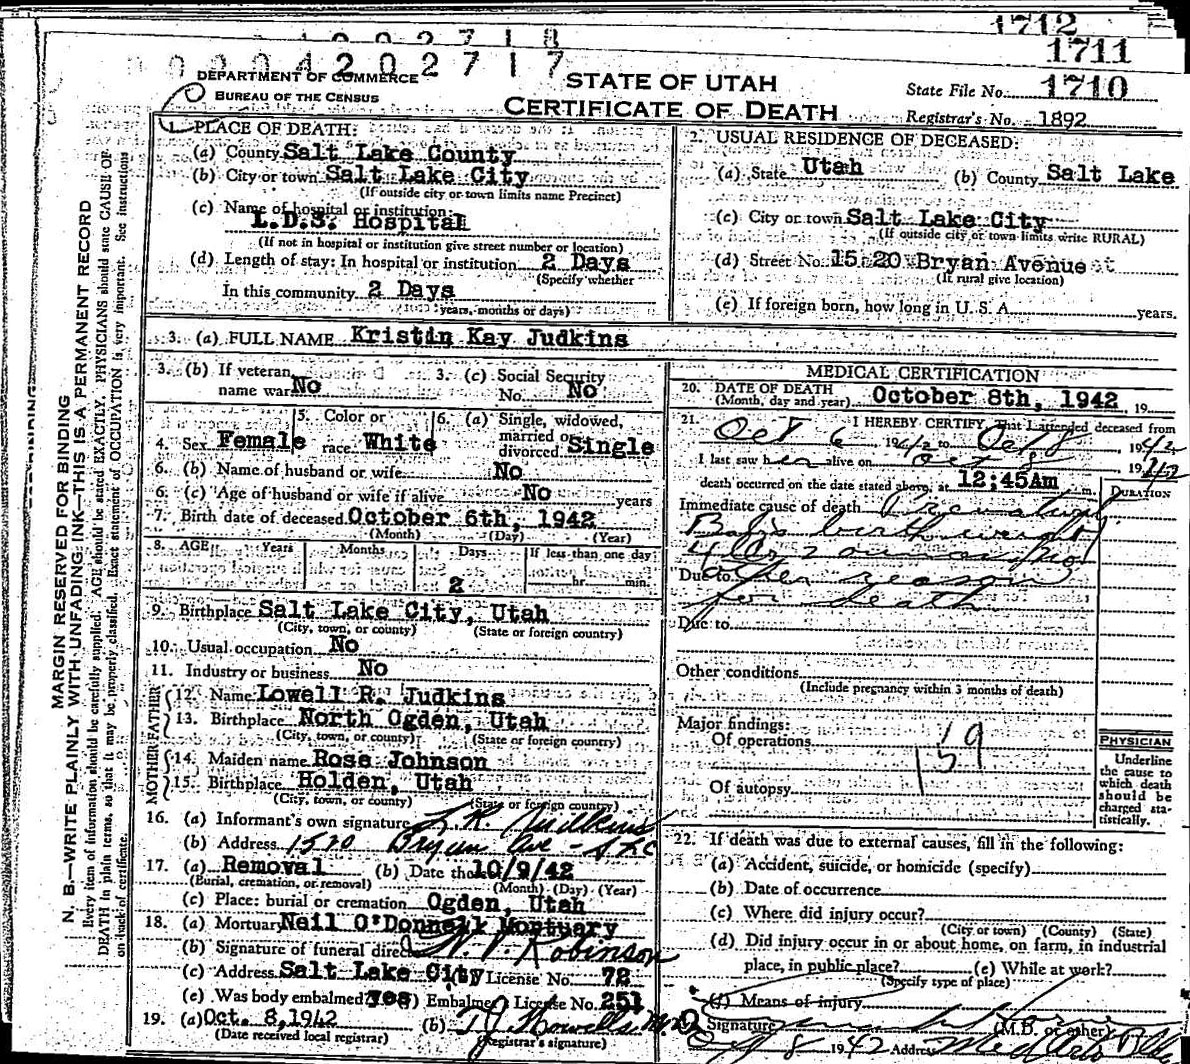 1712
1711
0 0 0 4 2 0 2 7 1 7
DEPARTMENT OF COMMERCE
BUREAU OF THE CENSUS
STATE OF UTAH
CERTIFICATE OF DEATH
State File No. 1710
Registrar's No. 1892
MARGIN RESERVED FOR BINDING
N. B.—WRITE PLAINLY WITH UNFADING INK—THIS IS A PERMANENT RECORD
Every item of information should be carefully supplied. AGE should be stated EXACTLY. PHYSICIANS should state CAUSE OF
DEATH in plain terms, so that it may be properly classified. Exact statement of OCCUPATION is very important. See instructions
on back of certificate.
1. PLACE OF DEATH:
(a) County Salt Lake County
(b) City or town Salt Lake City
(If outside city or town limits name Precinct)
(c) Name of hospital or institution:
L.D.S. Hospital
(If not in hospital or institution give street number or location)
(d) Length of stay: In hospital or institution 2 Days
(Specify whether
In this community 2 Days
years, months or days)
2. USUAL RESIDENCE OF DECEASED:
(a) State Utah (b) County Salt Lake
(c) City or town Salt Lake City
(If outside city or town limits write RURAL)
(d) Street No. 1520 Bryan Avenue
(If rural give location)
(e) If foreign born, how long in U. S. A. years.
3. (a) FULL NAME Kristin Kay Judkins
3. (b) If veteran,
name war No
3. (c) Social Security
No. No
4. Sex Female
5. Color or
race White
6. (a) Single, widowed,
married or
divorced Single
6. (b) Name of husband or wife No
6. (c) Age of husband or wife if alive No years
7. Birth date of deceased October 6th, 1942
(Month) (Day) (Year)
8. AGE Years Months Days If less than one day
2 hr. min.
9. Birthplace Salt Lake City, Utah
(City, town, or county) (State or foreign country)
10. Usual occupation No
11. Industry or business No
FATHER
12. Name Lowell R. Judkins
13. Birthplace North Ogden, Utah
(City, town, or county) (State or foreign country)
MOTHER
14. Maiden name Rose Johnson
15. Birthplace Holden, Utah
(City, town, or county) (State or foreign country)
16. (a) Informant's own signature L. R. Judkins
(b) Address 1520 Bryan Ave - SLC
17. (a) Removal (b) Date thereof 10/9/42
(Burial, cremation, or removal) (Month) (Day) (Year)
(c) Place: burial or cremation Ogden, Utah
18. (a) Mortuary Neil O'Donnell Mortuary
(b) Signature of funeral director W. V. Robinson
(c) Address Salt Lake City License No. 72
(e) Was body embalmed? yes) Embalmer License No. 251
19. (a) Oct. 8, 1942 (b) T. J. Howells, M.D.
(Date received local registrar) (Registrar's signature)
MEDICAL CERTIFICATION
20. DATE OF DEATH
(Month, day and year) October 8th, 1942 , 19
21. I HEREBY CERTIFY That I attended deceased from
Oct 6 1942 to Oct 8 1942
I last saw her alive on Oct 8 1942
death occurred on the date stated above, at 12:45Am m. DURATION
Immediate cause of death Premature
Baby birth weight
4 lbs 2 ounces No
Due to other reason
for death
Due to
Other conditions
(Include pregnancy within 3 months of death)
Major findings:
Of operations
159
Of autopsy
PHYSICIAN
Underline
the cause to
which death
should be
charged sta-
tistically.
22. If death was due to external causes, fill in the following:
(a) Accident, suicide, or homicide (specify)
(b) Date of occurrence
(c) Where did injury occur?
(City or town) (County) (State)
(d) Did injury occur in or about home, on farm, in industrial
place, in public place? (e) While at work?
(Specify type of place)
(f) Means of injury
Signature (M.D. or other)
8 1942 Address